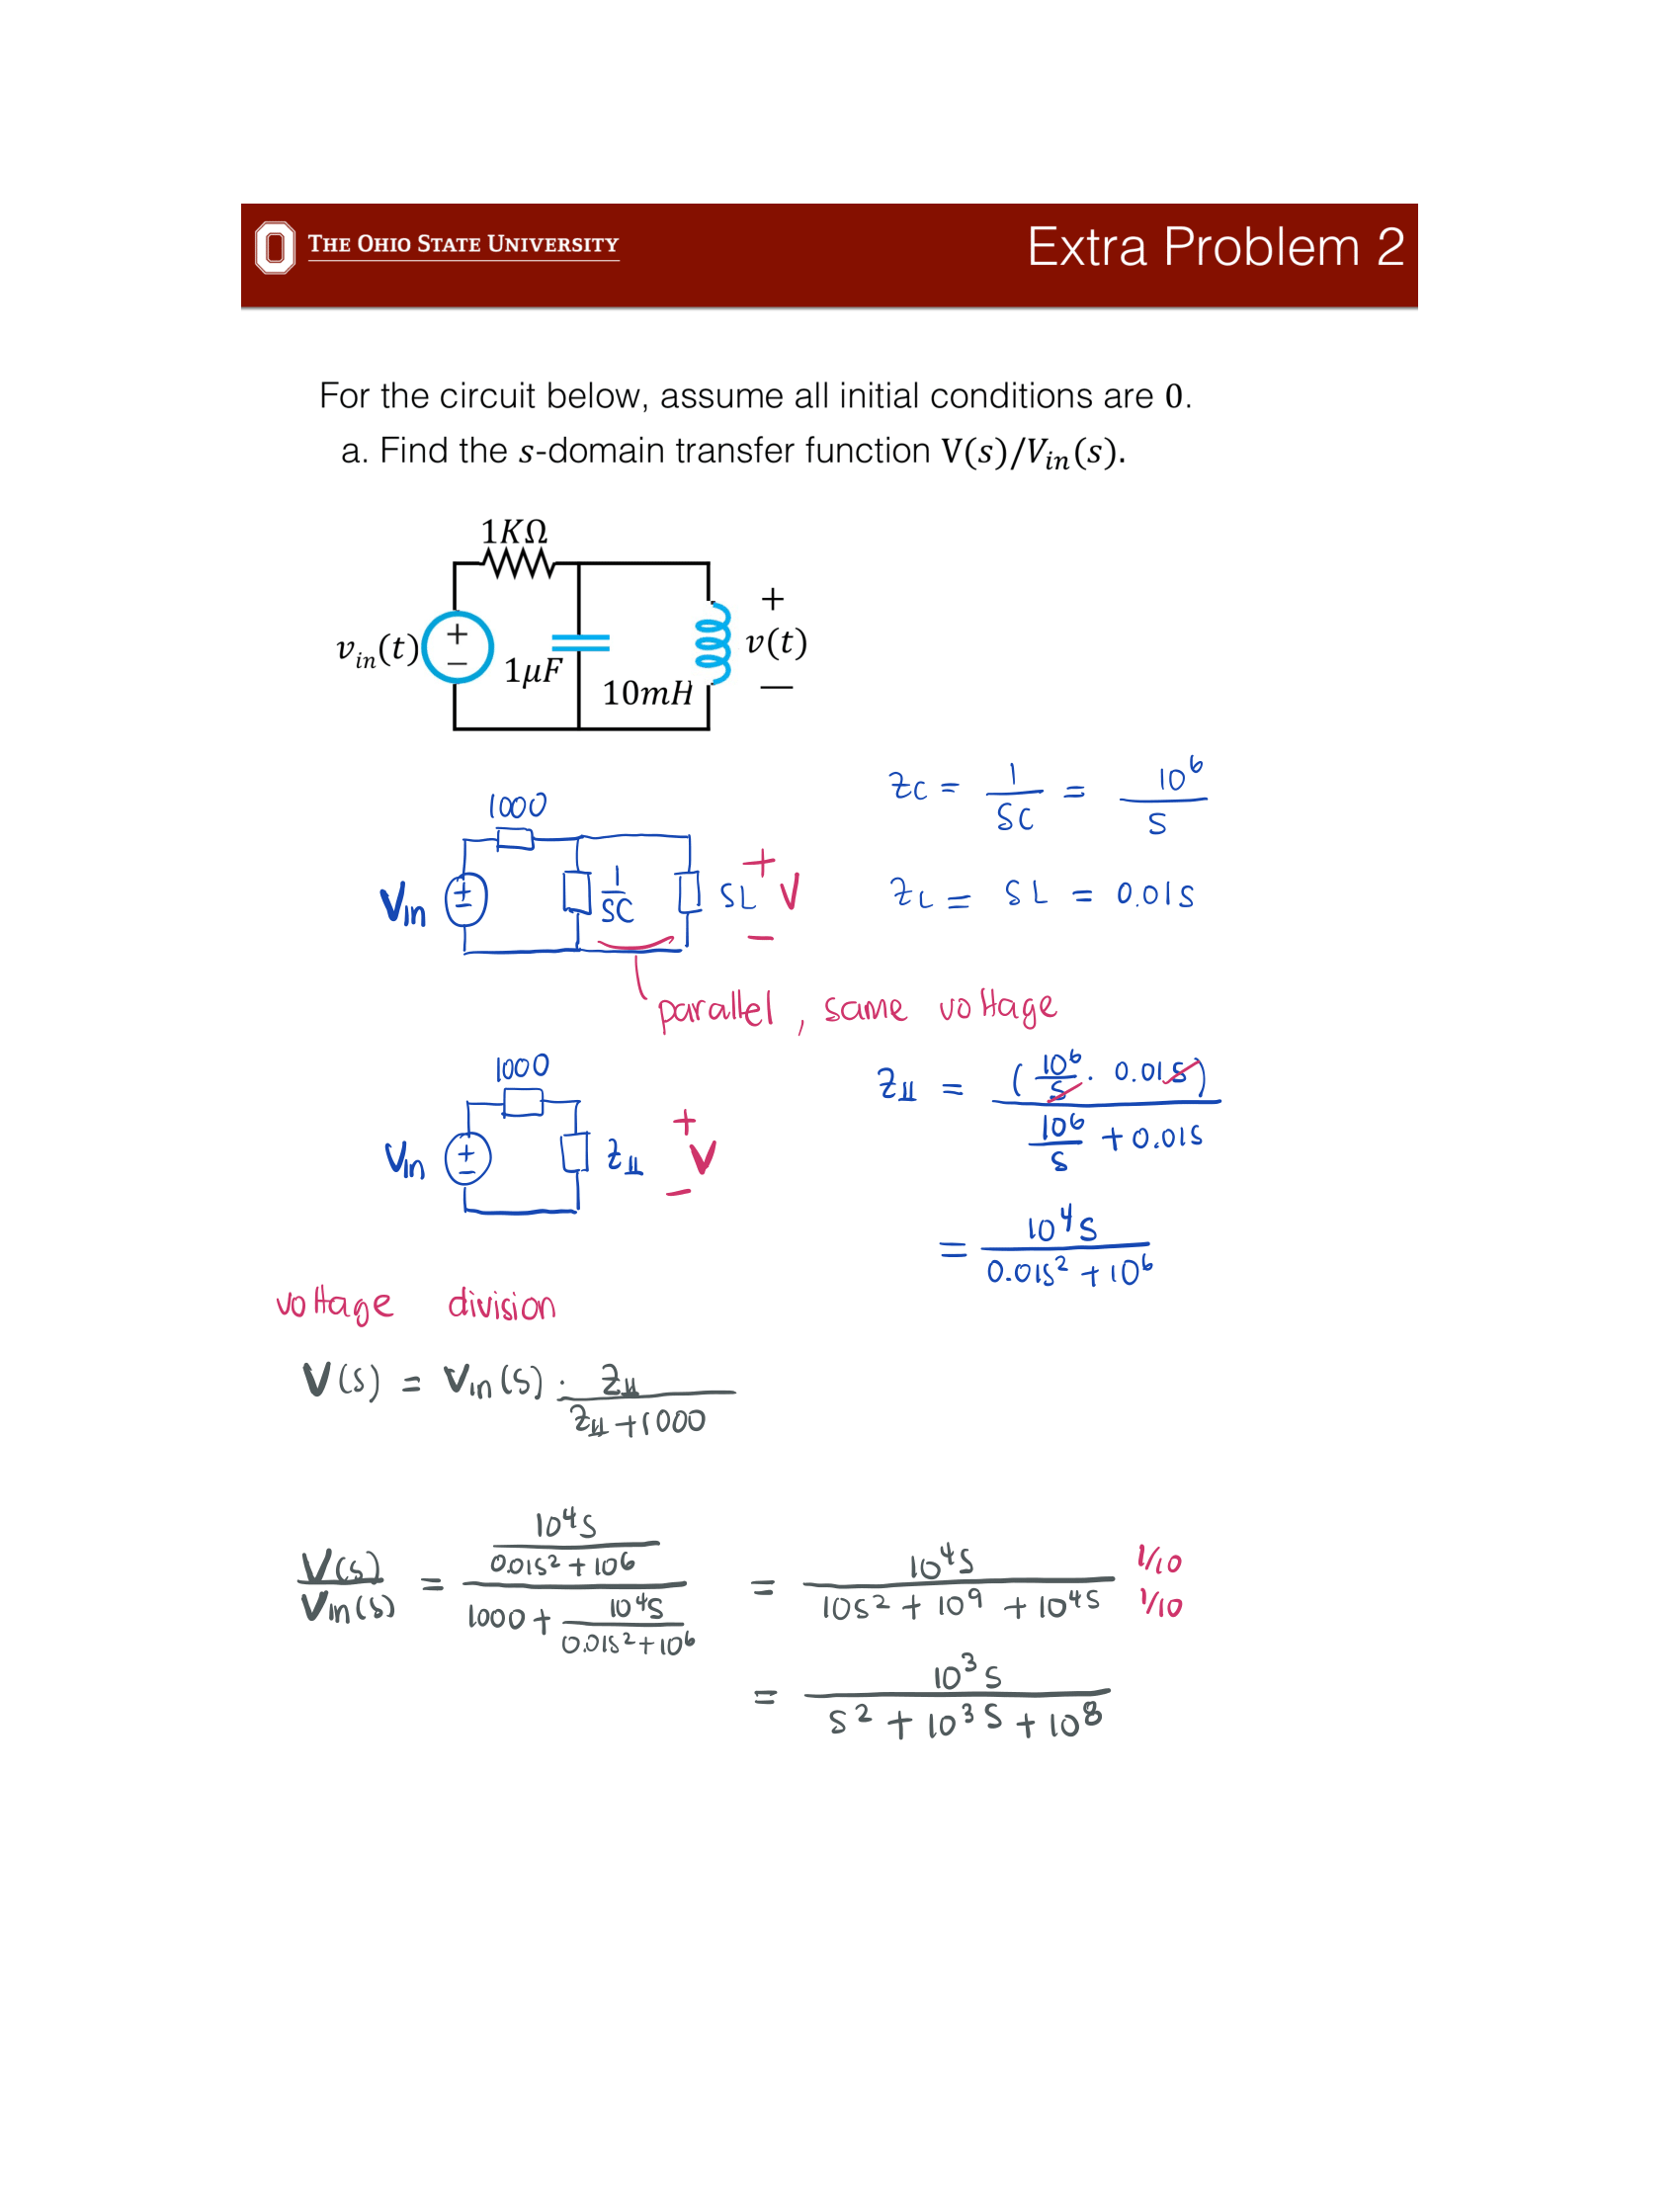 THE OHIO STATE UNIVERSITY
Extra Problem 2
For the circuit below, assume all initial conditions are 0.
a. Find the s-domain transfer function V(s)/V_in(s).
1KΩ
+
v_in(t) + − 1μF 10mH v(t)
—
Z_C = 1/SC = 10^6/S
1000
V_in + − 1/SC SL + V −
Z_L = SL = 0.01S
parallel, same voltage
1000
V_in + − Z_II + V −
Z_II = (10^6/S · 0.01S) / (10^6/S + 0.01S)
= 10^4S / (0.01S^2 + 10^6)
voltage division
V(S) = V_in(S) · Z_II / (Z_II + 1000)
V(S)/V_in(S) = (10^4S / (0.01S^2 + 10^6)) / (1000 + 10^4S / (0.01S^2 + 10^6)) = 10^4S / (10S^2 + 10^9 + 10^4S) 1/10 1/10
= 10^3S / (S^2 + 10^3S + 10^8)